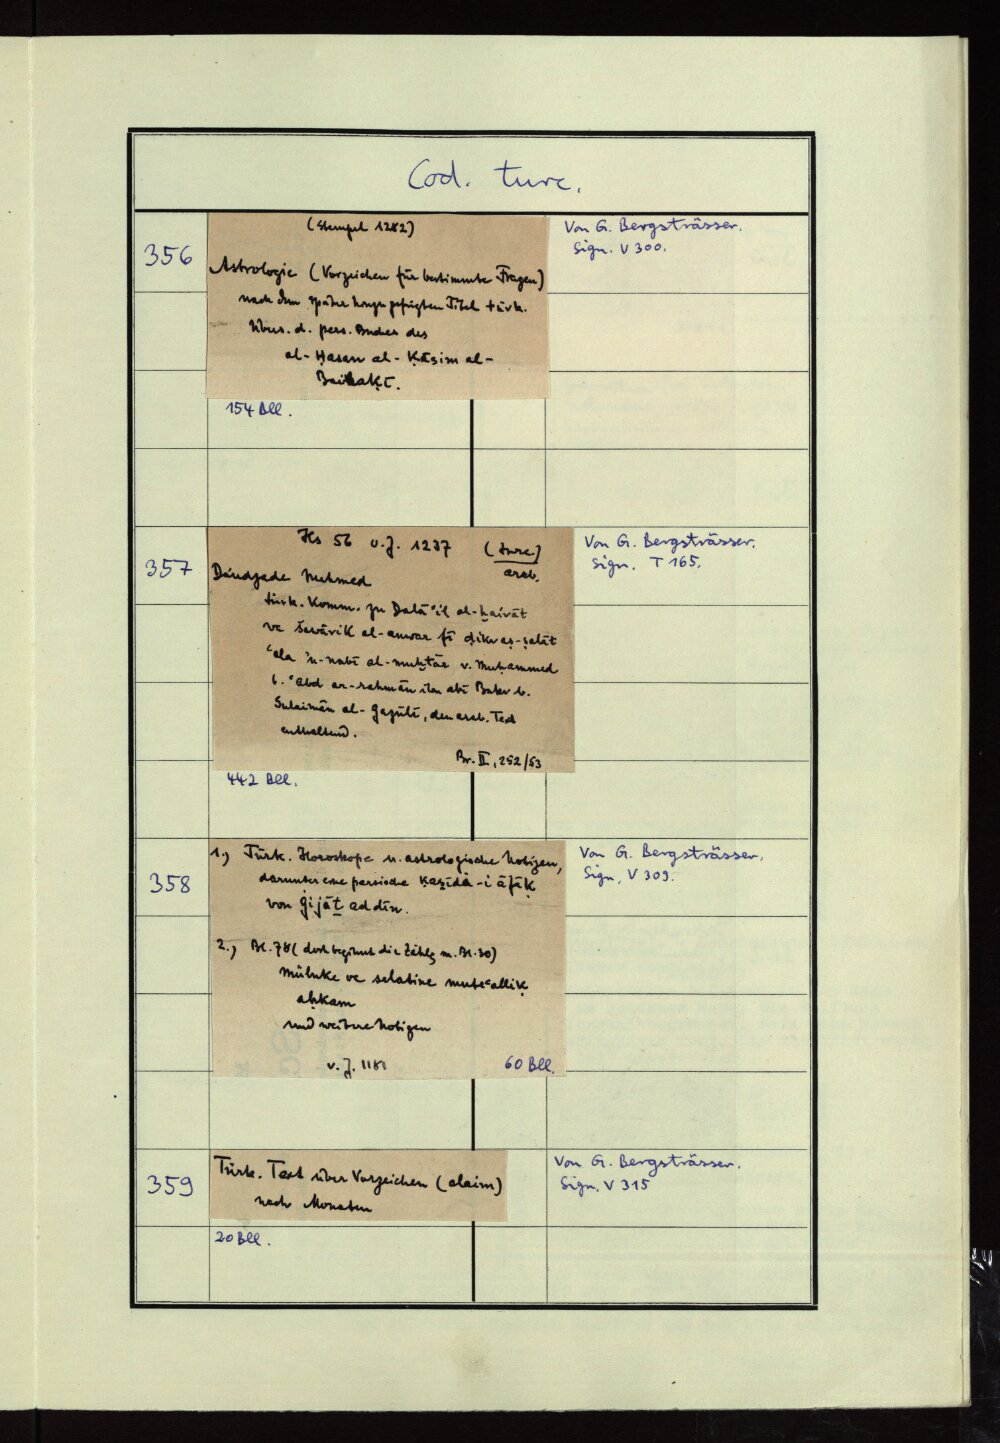 Cod. turc.
356
(Stempel 1282)
Astrologie (Vorzeichen für bestimmte Fragen)
nach dem später hinzugefügten Titel türk.
Übers. d. pers. Buches des
al-Ḥasan al-Ḳāsim al-
Baihaḳī.
154 Bll.
Von G. Bergsträsser.
Sign. V 300.
357
Hs 56 v.J. 1237 (turc.)
arab.
Dāudzade Mehmed
türk. Komm. zu Dalā'il al-ḫairāt
ve šawāriḳ al-anwar fī ḏikr aṣ-ṣalāt
ʿala 'n-nabī al-muḫtār v. Muḥammed
b. ʿabd ar-rahmān ibn abī Bakr b.
Sulaimān al-Ǧazūlī, den arab. Text
enthaltend.
Br. II, 252/53
442 Bll.
Von G. Bergsträsser.
Sign. T 165.
358
1.) Türk. Horoskope u. astrologische Notizen,
darunter eine persische ḳaṣīdä-i āfāḳ
von Ġijāṯ addīn.
2.) Bl. 78 (doch beginnt die Zählg m. Bl. 30)
Mülūke ve selatine muteʿalliḳ
aḥkam
und weitere Notizen
v. J. 1181
60 Bll.
Von G. Bergsträsser.
Sign. V 309.
359
Türk. Text über Vorzeichen (alaim)
nach Monaten
20 Bll.
Von G. Bergsträsser.
Sign. V 315